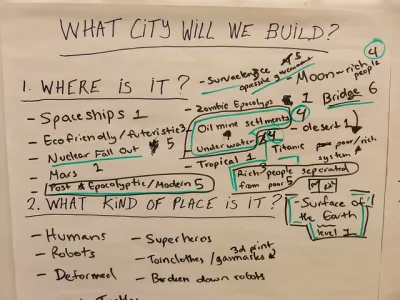 WHAT CITY WILL WE BUILD?
4
1. WHERE IS IT?
- Survaclence 5
opressive government
- Moon-rich people
- Spaceships 1
- Zombie Epocolyps 1
Bridge 6
- Ecofriendly/futeristic 3
Oil mine setlments 4
- desert 1
- Nuclear Fall Out 5
Underwater 4
Titanic poor/rich system
- Mars 2
- Tropical 1
Post Epocolyptic/Modern 5
Rich people seperated from poor 5
2. WHAT KIND OF PLACE IS IT?
- Surface of the Earth
level 1
- Humans
- Superheros
- Robots
- Torn clothes/gasmasks
3d print
- Deformed
- Broken down robots